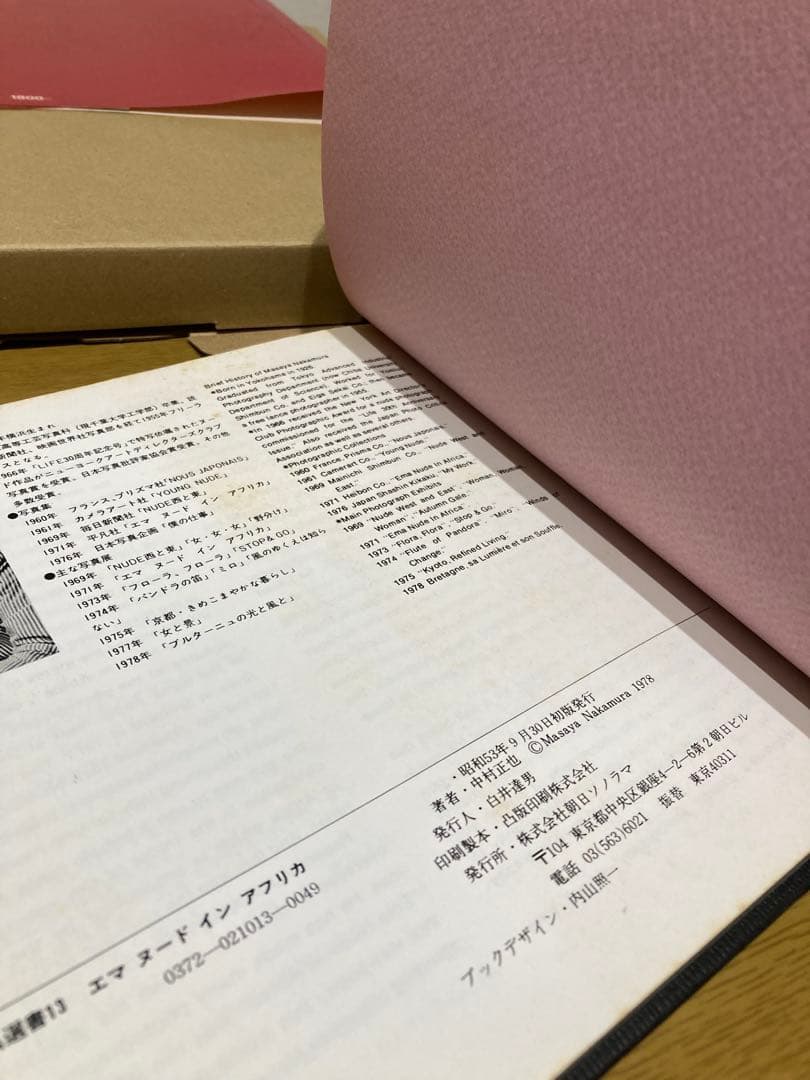 1800
年横浜生まれ
高等工芸写真科（現千葉大学工学部）卒業、読
新聞社、映画世界社写真部を経て1955年フリーラ
スとなる。
966年「LIFE30周年記念号」で特写依頼されたヌー
ド作品がニューヨークアートディレクターズクラブ
写真賞を受賞、日本写真批評家協会賞受賞、その他
多数受賞。
●写真集
1960年 フランス、プリズマ社「NOUS JAPONAIS」
1961年 カメラアート社「YOUNG NUDE」
1969年 毎日新聞社「NUDE西と東」
1971年 平凡社「エマ ヌード イン アフリカ」
1976年 日本写真企画「僕の仕事」
●主な写真展
1969年「NUDE西と東」「女・女・女」「野分け」
1971年「エマ ヌード イン アフリカ」
1973年「フローラ、フローラ」「STOP & GO」
1974年「パンドラの笛」「ミロ」「風のゆく人は知ら
ない」
1975年「京都・きめこまやかな暮らし」
1977年「女と景」
1978年「ブルターニュの光と風と」
Brief History of Masaya Nakamura
●Born in Yokohama in 1926.
Graduated from Tokyo Advanced Industrial
Photography Department (now Chiba
Department of Science). Worked for
Shimbun Co. and Eiga Sekai Co., then
a free lance photographer in 1955.
●In 1966 received the New York Art Directors
Club Photographic Award for a nude photograph
commissioned for the "Life 30th
Issue". Also received the Japan Photo Critics
Association as well as several others.
●Photographic Collections
1960 France, Prisma Co., "Nous Japonais"
1961 Cameraart Co., "Young Nude."
1969 Mainichi Shimbun Co., "Nude West and
East."
1971 Heibon Co., "Ema Nude in Africa."
1976 Japan Shashin Kikaku, "My Work."
●Main Photograph Exhibits
1969 "Nude West and East", "Woman, Woman,
Woman", "Autumn Gale."
1971 "Ema Nude in Africa."
1973 "Flora, Flora", "Stop & Go."
1974 "Flute of Pandora", "Miro", "Winds of
Change."
1975 "Kyoto, Refined Living"
1978 Bretagne, sa Lumière et son Souffle.
・昭和53年9月30日初版発行
著者・中村正也 ©Masaya Nakamura 1978
発行人・臼井達男
印刷製本・凸版印刷株式会社
発行所・株式会社朝日ソノラマ
〒104 東京都中央区銀座4—2—6第2朝日ビル
電話 03(563)6021 振替 東京40311
ブックデザイン・内山照一
選書13 エマ ヌード イン アフリカ
0372—021013—0049